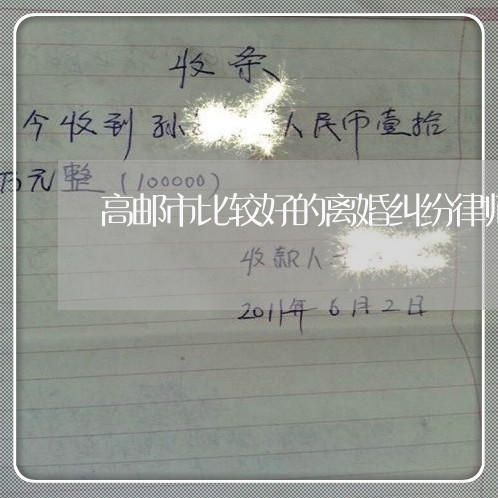 收条
今收到孙 人民币壹拾
万元整(100000)
高邮市比较好的离婚纠纷律师
收款人
2011年6月2日